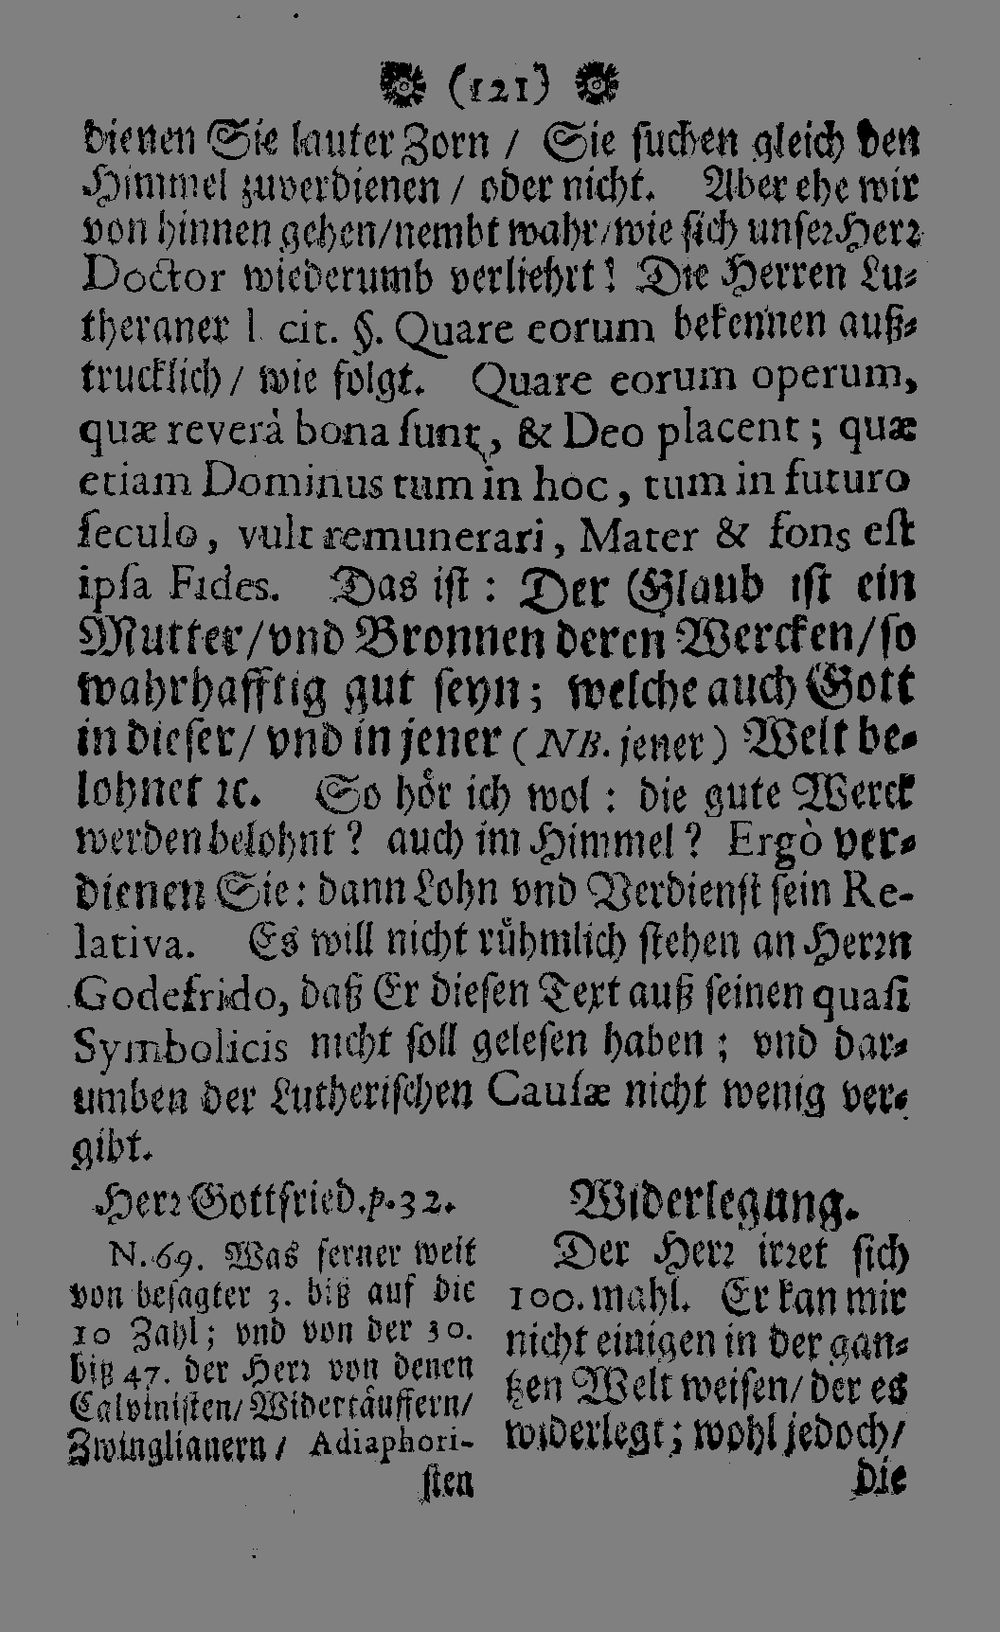 (121)
dienen Sie lauter Zorn / Sie suchen gleich den
Himmel zuverdienen / oder nicht. Aber ehe wir
von hinnen gehen/nembt wahr/wie sich unser Herr
Doctor wiederumb verliehrt! Die Herren Lu-
theraner l. cit. §. Quare eorum bekennen auß-
trucklich / wie folgt. Quare eorum operum,
quæ reverà bona sunt, & Deo placent; quæ
etiam Dominus tum in hoc, tum in futuro
seculo, vult remunerari, Mater & fons est
ipsa Fides. Das ist: Der Glaub ist ein
Mutter/vnd Bronnen deren Wercken/so
wahrhafftig gut seyn; welche auch Gott
in dieser/ vnd in jener (NB. jener) Welt be-
lohnet ꝛc. So hör ich wol: die gute Werck
werden belohnt? auch im Himmel? Ergò ver-
dienen Sie: dann Lohn vnd Verdienst sein Re-
lativa. Es will nicht rühmlich stehen an Herrn
Godefrido, daß Er diesen Text auß seinen quasi
Symbolicis nicht soll gelesen haben; vnd dar-
umben der Lutherischen Causæ nicht wenig ver-
gibt.
Herr Gottfried. p. 32.
N. 69. Was ferner weit
von besagter 3. biß auf die
10 Zahl; vnd von der 30.
biß 47. der Herr von denen
Calvinisten/ Widertäuffern/
Zwinglianern / Adiaphori-
sten
Widerlegung.
Der Herr irret sich
100. mahl. Er kan mir
nicht einigen in der gan-
tzen Welt weisen/ der es
widerlegt; wohl jedoch/
die